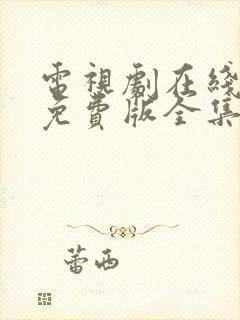 電視劇在綫
免費版全集
蕾西